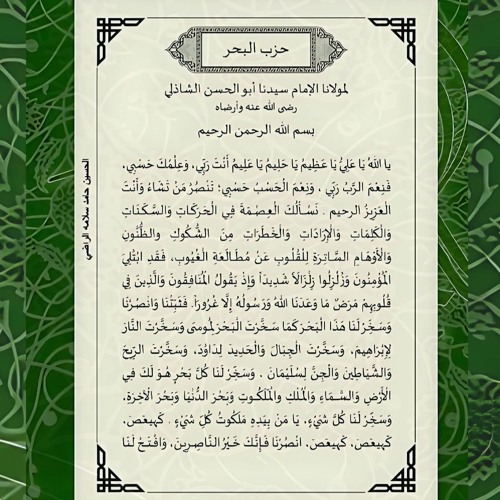 حزب البحر
لمولانا الإمام سيدنا أبو الحسن الشاذلي
رضى الله عنه وأرضاه
بسم الله الرحمن الرحيم
يا اللهُ يَا عَلِيُّ يَا عَظِيمُ يَا حَلِيمُ يَا عَلِيمُ أَنْتَ رَبِّي، وَعِلْمُكَ حَسْبِي،
فَنِعْمَ الرَّبُّ رَبِّي ، وَنِعْمَ الْحَسْبُ حَسْبِي؛ تَنْصُرُ مَنْ تَشَاءُ وَأَنْتَ
العَزِيزُ الرحيم . نَسْأَلُكَ العِصْمَةَ فِي الْحَرَكَاتِ وَالسَّكَنَاتِ
وَالْكَلِمَاتِ وَالْإِرَادَاتِ وَالْخَطَرَاتِ مِنَ الشُّكُوكِ وَالظُّنُونِ
وَالْأَوْهَامِ السَّاتِرَةِ لِلْقُلُوبِ عَنْ مُطَالَعَةِ الْغُيُوبِ، فَقَدِ ابْتُلِيَ
الْمُؤْمِنُونَ وَزُلْزِلُوا زِلْزَالاً شَدِيداً وَإِذْ يَقُولُ الْمُنَافِقُونَ وَالَّذِينَ فِي
قُلُوبِهِمْ مَرَضٌ مَا وَعَدَنَا اللهُ وَرَسُولُهُ إِلَّا غُرُوراً. فَثَبِّتْنَا وَانْصُرْنَا
وَسَخِّرْ لَنَا هَذَا الْبَحْرَ كَمَا سَخَّرْتَ الْبَحْرَ لِمُوسَى وَسَخَّرْتَ النَّارَ
لِإِبْرَاهِيمَ، وَسَخَّرْتَ الْجِبَالَ وَالْحَدِيدَ لِدَاوُدَ، وَسَخَّرْتَ الرِّيحَ
وَالشَّيَاطِينَ وَالْجِنَّ لِسُلَيْمَانَ . وَسَخِّرْ لَنَا كُلَّ بَحْرٍ هُوَ لَكَ فِي
الْأَرْضِ وَالسَّمَاءِ وَالْمُلْكِ وَالْمَلَكُوتِ وَبَحْرَ الدُّنْيَا وَبَحْرَ الْآخِرَةِ،
وَسَخِّرْ لَنَا كُلَّ شَيْءٍ، يَا مَنْ بِيَدِهِ مَلَكُوتُ كُلِّ شَيْءٍ . كَهيعَصَ،
كَهيعَصَ، كَهيعَصَ، انْصُرْنَا فَإِنَّكَ خَيْرُ النَّاصِرِينَ، وَافْتَحْ لَنَا
الحسين حامد سلامه الراضي